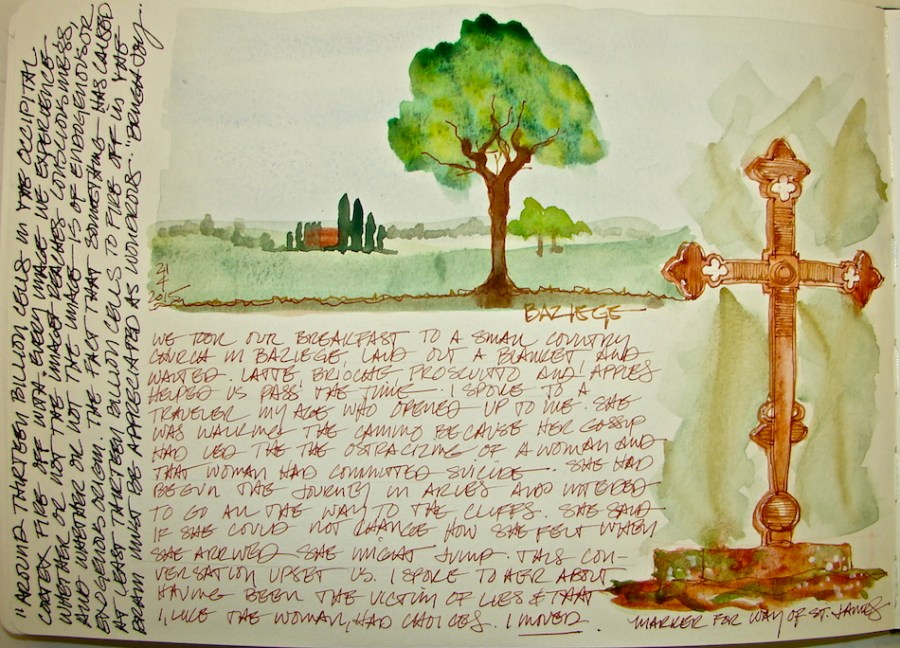 "AROUND THIRTEEN BILLION CELLS IN THE OCCIPITAL
CORTEX FIRE OFF WITH EVERY IMAGE WE EXPERIENCE
WHETHER OR NOT THE IMAGE REACHES CONSCIOUSNESS,
AND WHETHER OR NOT THE IMAGE IS OF EXOGENOUS OR
ENDOGENOUS ORIGIN. THE FACT THAT SOMETHING HAS CAUSED
AT LEAST THIRTEEN BILLION CELLS TO FIRE OFF IN THE
BRAIN MUST BE APPRECIATED AS WONDROUS."
21
4
BAZIEGE
WE TOOK OUR BREAKFAST TO A SMALL COUNTRY
CHURCH IN BAZIEGE, LAID OUT A BLANKET AND
WAITED. LATTE, BRIOCHE, PROSCIUTTO AND APPLES
HELPED US PASS THE TIME. I SPOKE TO A
TRAVELER MY AGE WHO OPENED UP TO ME. SHE
WAS WALKING THE CAMINO BECAUSE HER GOSSIP
HAD LED THE THE OSTRACIZING OF A WOMAN AND
THAT WOMAN HAD COMMITTED SUICIDE. SHE HAD
BEGUN THE JOURNEY IN ARLES AND INTENDED
TO GO ALL THE WAY TO THE CLIFFS. SHE SAID
IF SHE COULD NOT CHANGE HOW SHE FELT WHEN
SHE ARRIVED SHE MIGHT JUMP. THIS CON-
VERSATION UPSET US. I SPOKE TO HER ABOUT
HAVING BEEN THE VICTIM OF LIES & THAT
I, LIKE THE WOMAN, HAD CHOICES. I MOVED.
MARKER FOR WAY OF ST. JAMES